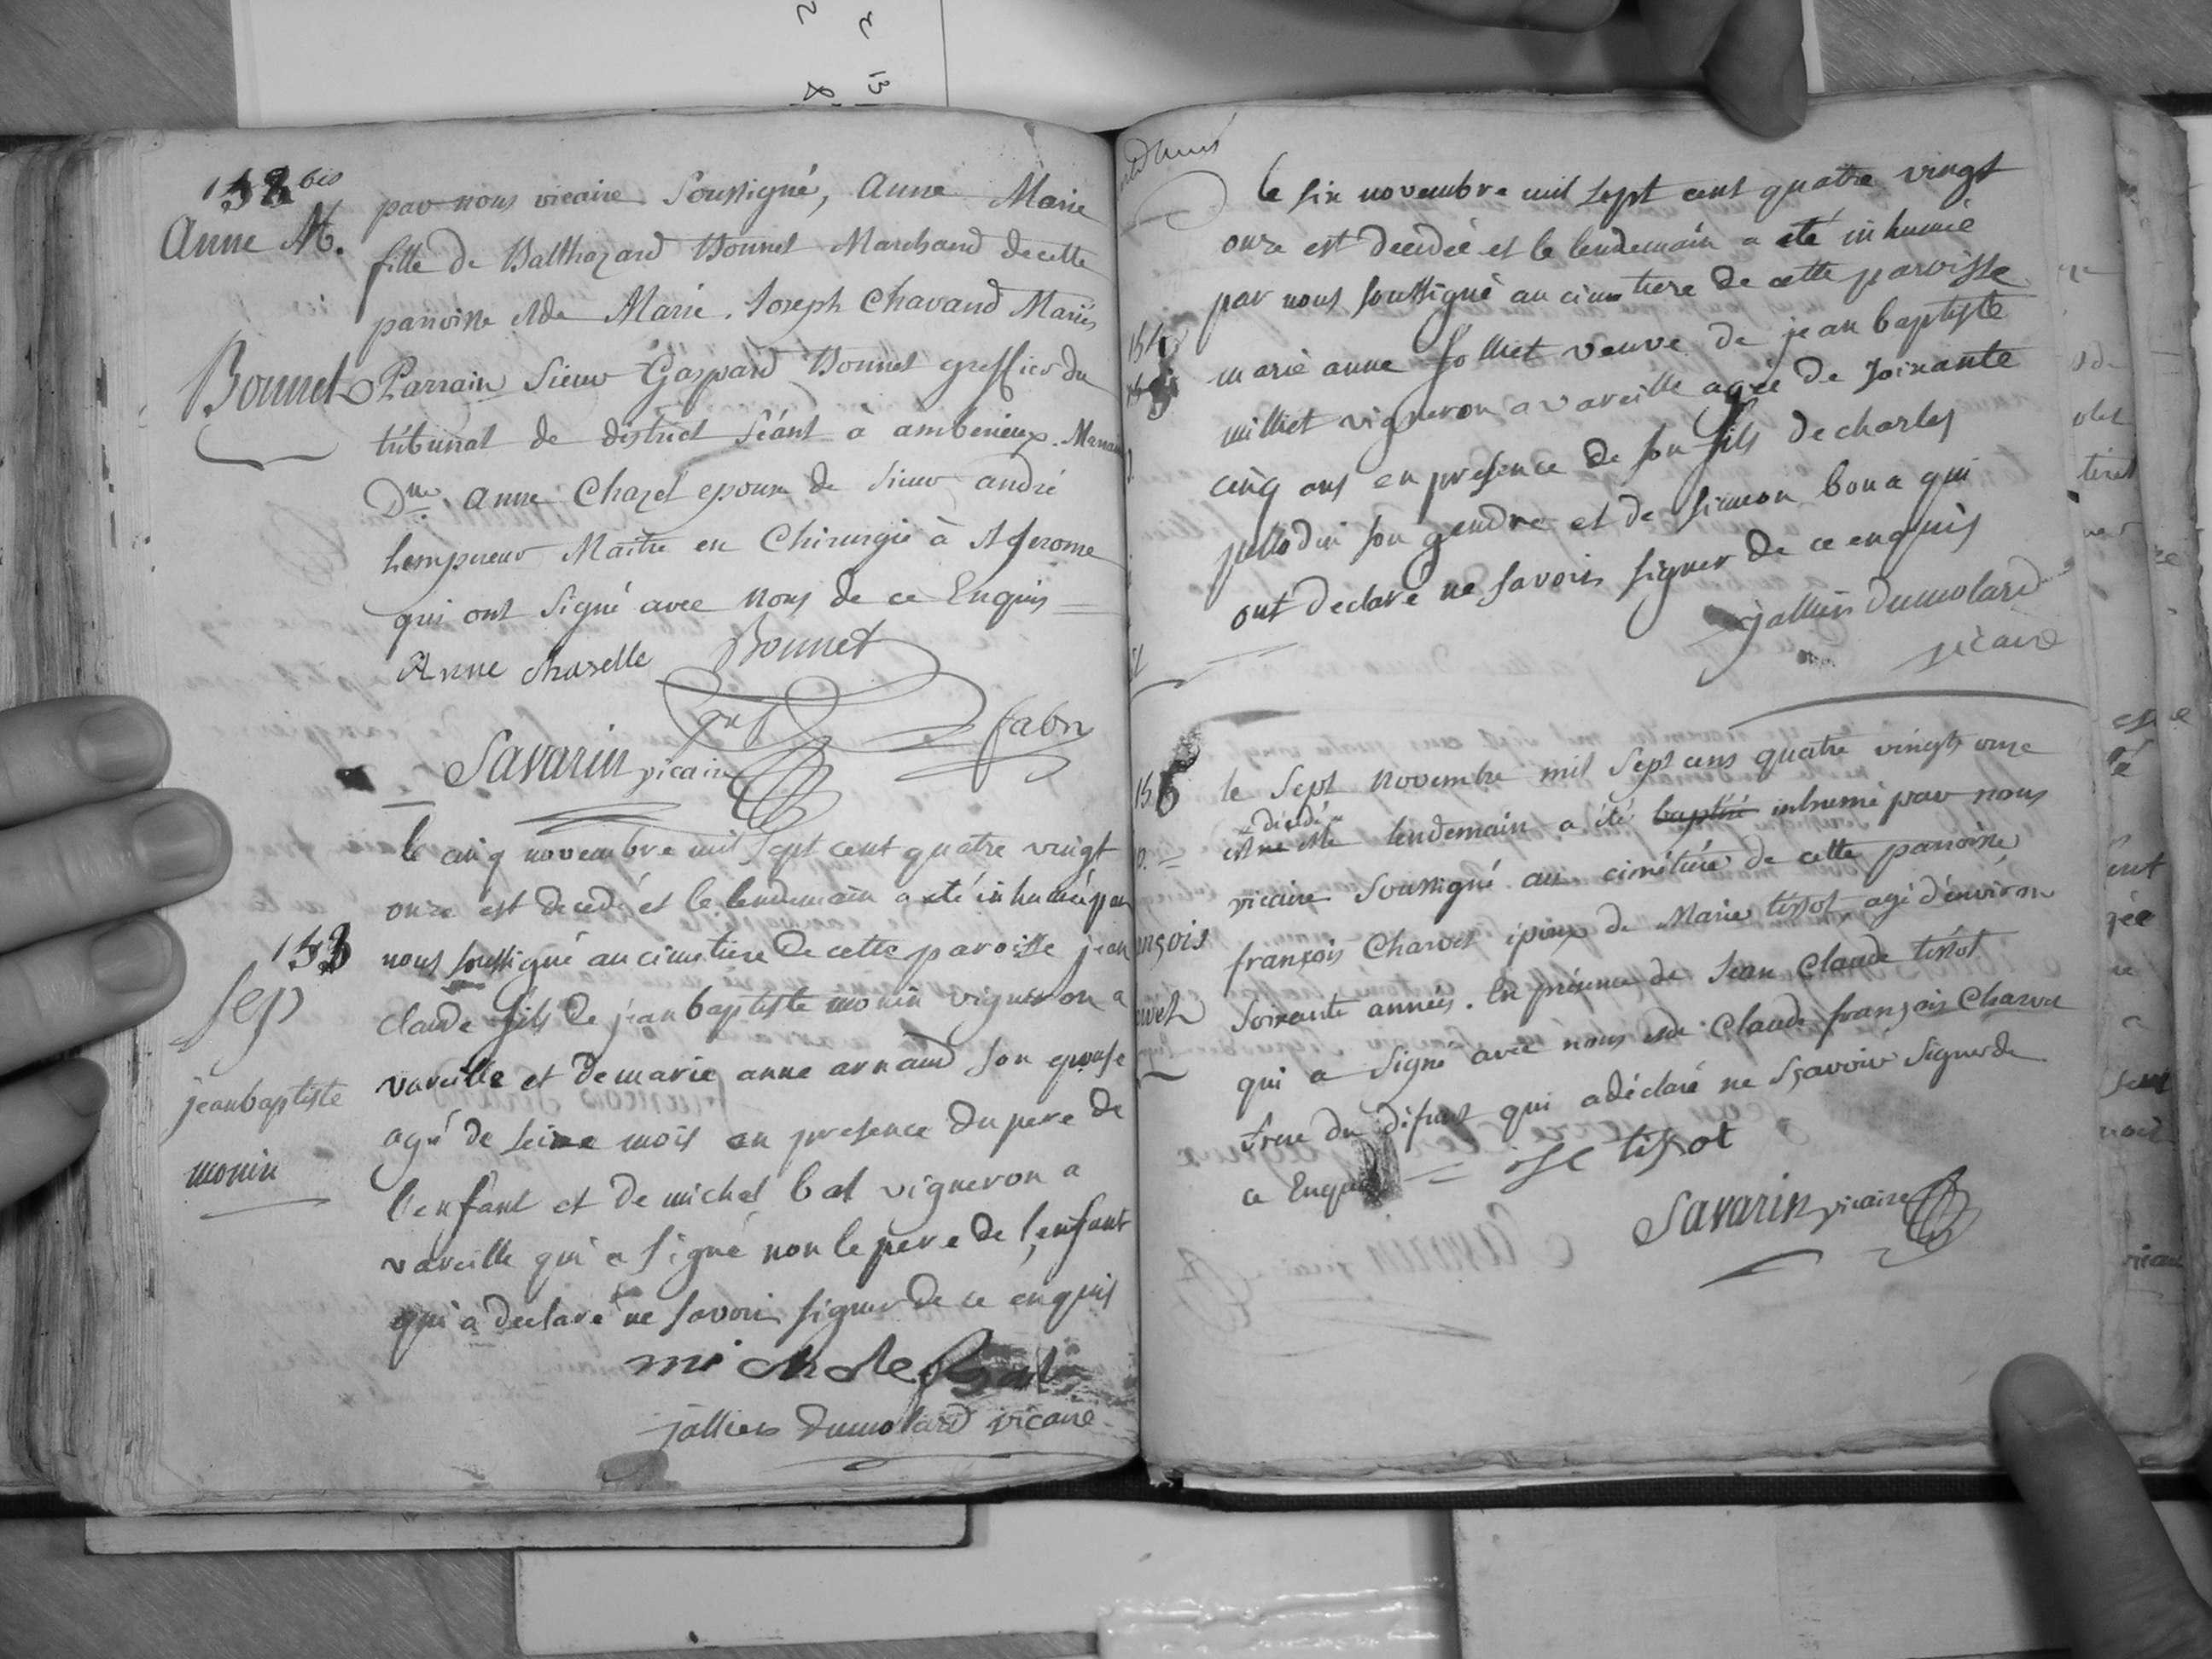 152 bis
Anne M.
Bonnet
par nous vicaire Soussigné, Anne Marie
fille de Balthazard Bonnet Marchand de cette
paroisse et de Marie. Joseph Chavand Mariés
Parrain Sieur Gaspard Bonnet greffier du
tribunal de district Séant à amberieux. Marraine
Dme Anne Chazel epouse de Sieur andré
Lempereur Maitre en Chirurgie à St Jerome
qui ont Signé avec Nous de ce Enquis
Anne Chaselle Bonnet
gref fabri
Savarin vicaire
153
sep
jean baptiste
monin
le cinq novembre mil Sept cent quatre vingt
onze est decedé et le lendemain a eté inhumé par
nous soussigné au cimetiere de cette paroisse jean
claude fils de jean baptiste monin vigneron a
vareille et de marie anne arnaud son epouse
agé de seize mois en presence du pere de
l'enfant et de michel bal vigneron a
vareille qui a signé non le pere de l'enfant
qui a declaré ne savoir signer de ce enquis
michele Bal
jalliers dumolard vicaire
le six novembre mil sept cent quatre vingt
onze est decedée et le lendemain a eté inhumée
par nous soussigné au cimetiere de cette paroisse
marie anne folliet veuve de jean baptiste
milliet vigneron a vareille agée de soixante
cinq ans en presence de son fils de charles
jullodin son gendre et de simeon bona qui
ont declaré ne savoir signer de ce enquis
jalliers dumolard
vicaire
156
ançois
le Sept Novembre mil Sept cens quatre vingts onze
decedé
est et le lendemain a été baptisé inhumé par nous
vicaire Soussigné au cimétiere de cette paroisse
françois Charvet époux de Marie tissot agé d'environ
Soixante années. En présence de Jean Claude tissot
qui a Signé avec nous et de Claude françois Charvet
frere du défunt qui a déclaré ne Sçavoir Signer de
ce Enquis J C tissot
Savarin vicaire